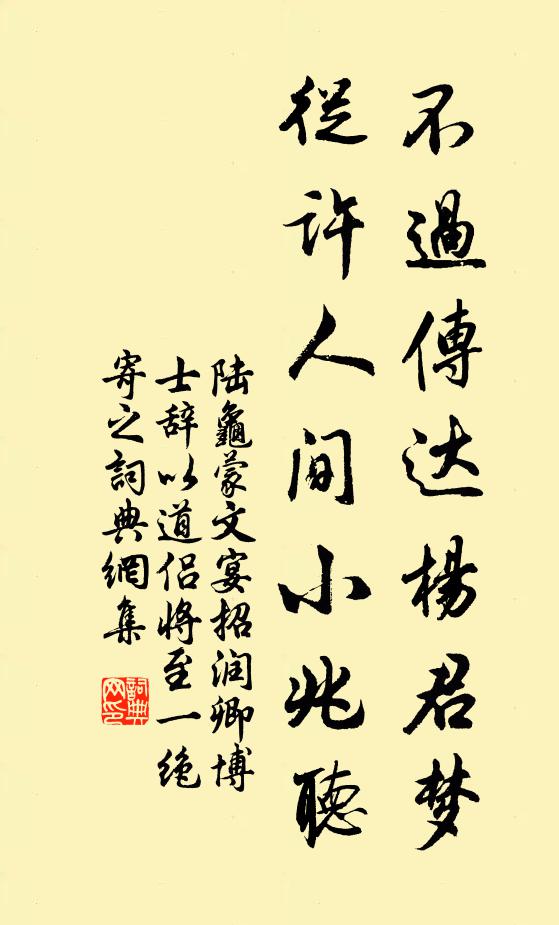 不過傳达楊君梦
從许人间小兆聴
陆龜蒙文宴招润卿博
士辞以道侣将至一绝
寄之詞典網集
詞典
网印